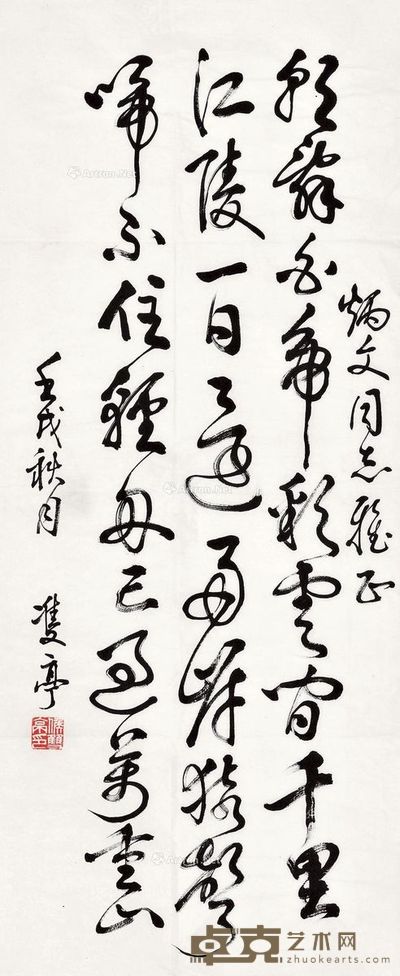 炳文同志雅正
朝辭白帝彩雲間千里
江陵一日還兩岸猿聲
啼不住輕舟已過萬重山
壬戌秋月 雙亭
Artron.Net
卓克艺术网
www.zhuokearts.com